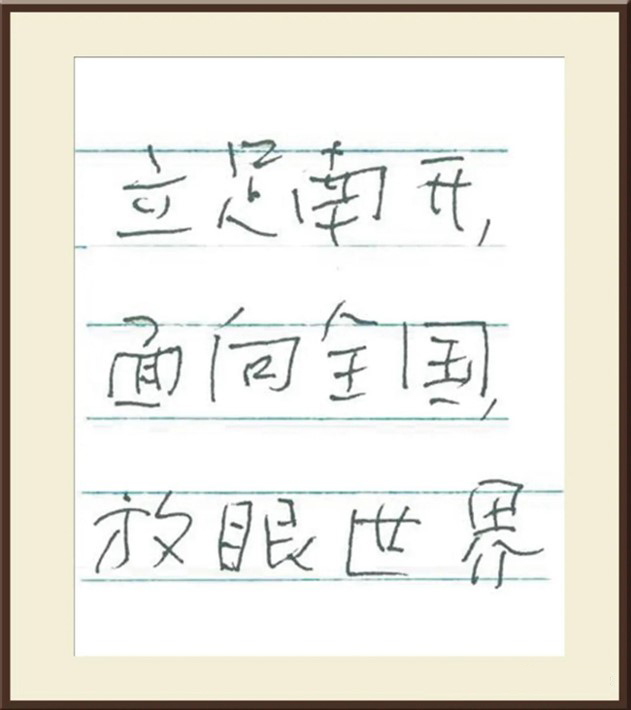 立足南开,
面向全国,
放眼世界